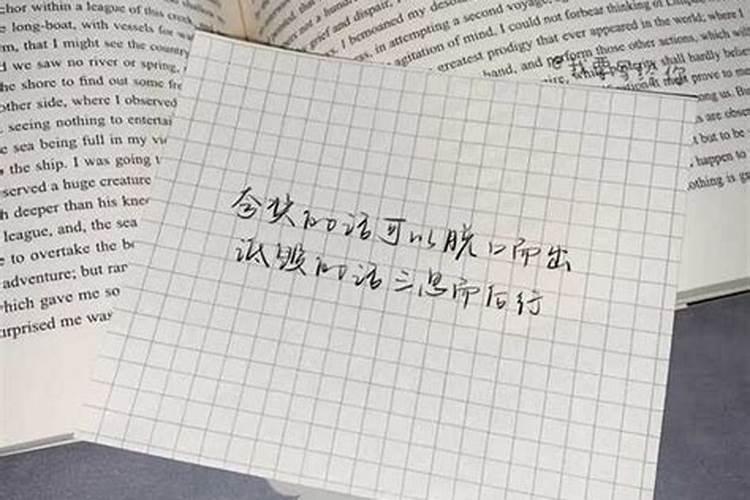 chor within a league of this creek
long-boat, with vessels for
that I might see the country
we saw no river or spring,
he shore to find out some
other side, where I observed
seeing nothing to
sea being full in my
the ship. I was going
served a huge creature
deeper than his
league, and, the sea
to overtake the
adventure; but
which gave me so
surprised me was
grief and dispair,
I bemoaned my
in attempting a second voyage,
agitation of mind, I could not forbear thinking of
greatest prodigy that ever appeared in the world; where I
hand, and perform those other actions, which
shall hardly
prove to
us. But
are
but to be
happen to
othing is
@我要写给你
夸奖的话可以脱口而出
诋毁的话三思而后行